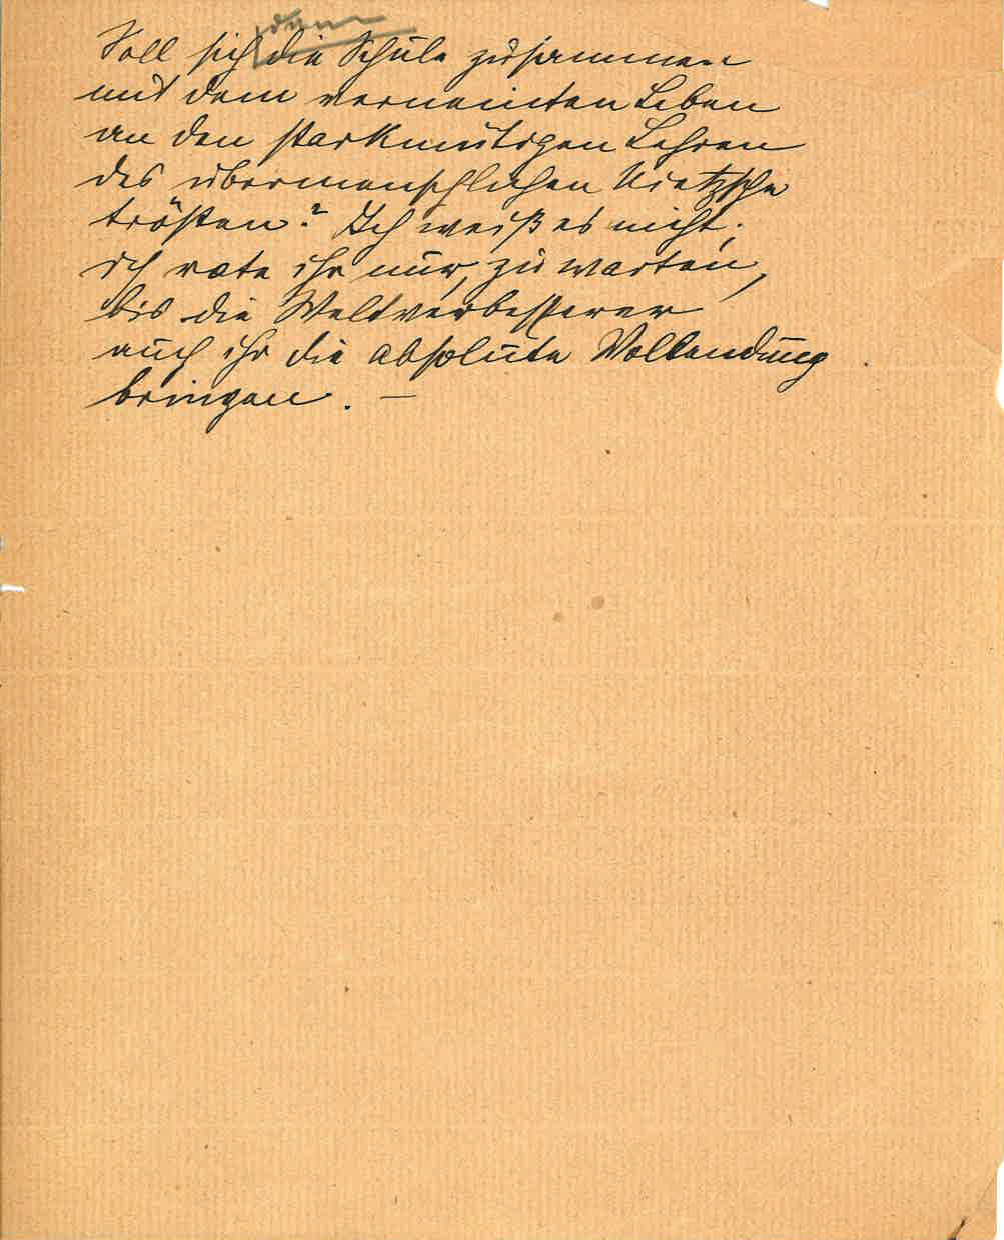 Soll sich dann die Schule zusammen
mit dem verneinten Leben
an den starkmütigen Lehren
des übermenschlichen Nietzsche
trösten? Ich weiß es nicht;
ich rate ihr nur, zu warten,
bis die Weltverbesserer
auch ihr die absolute Vollendung
bringen. —